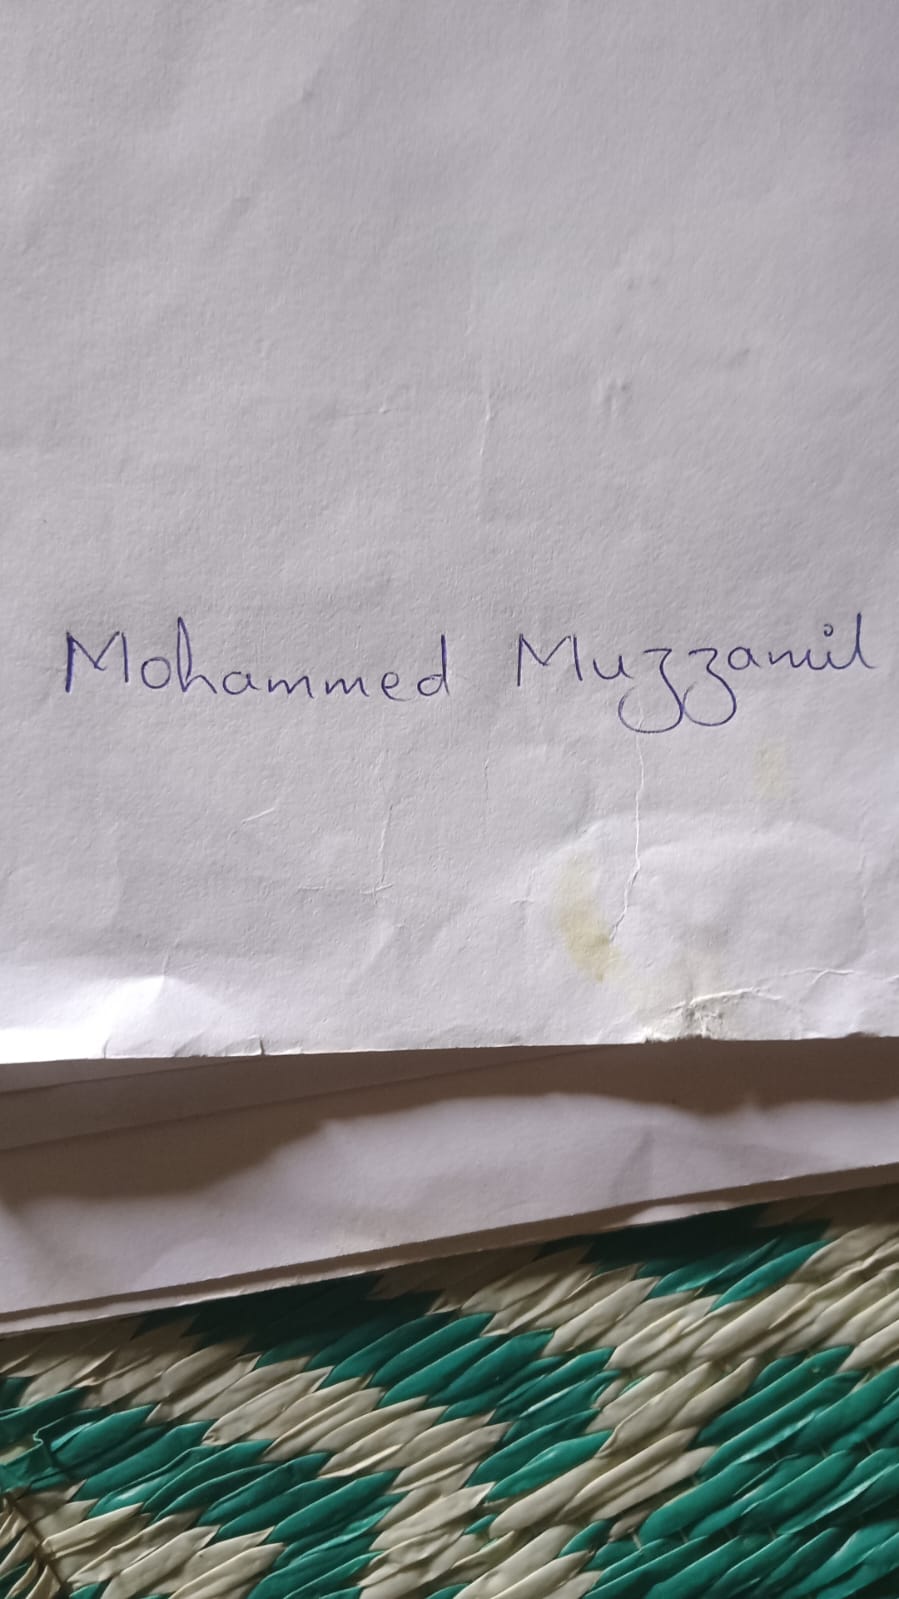 Mohammed Muzzamil